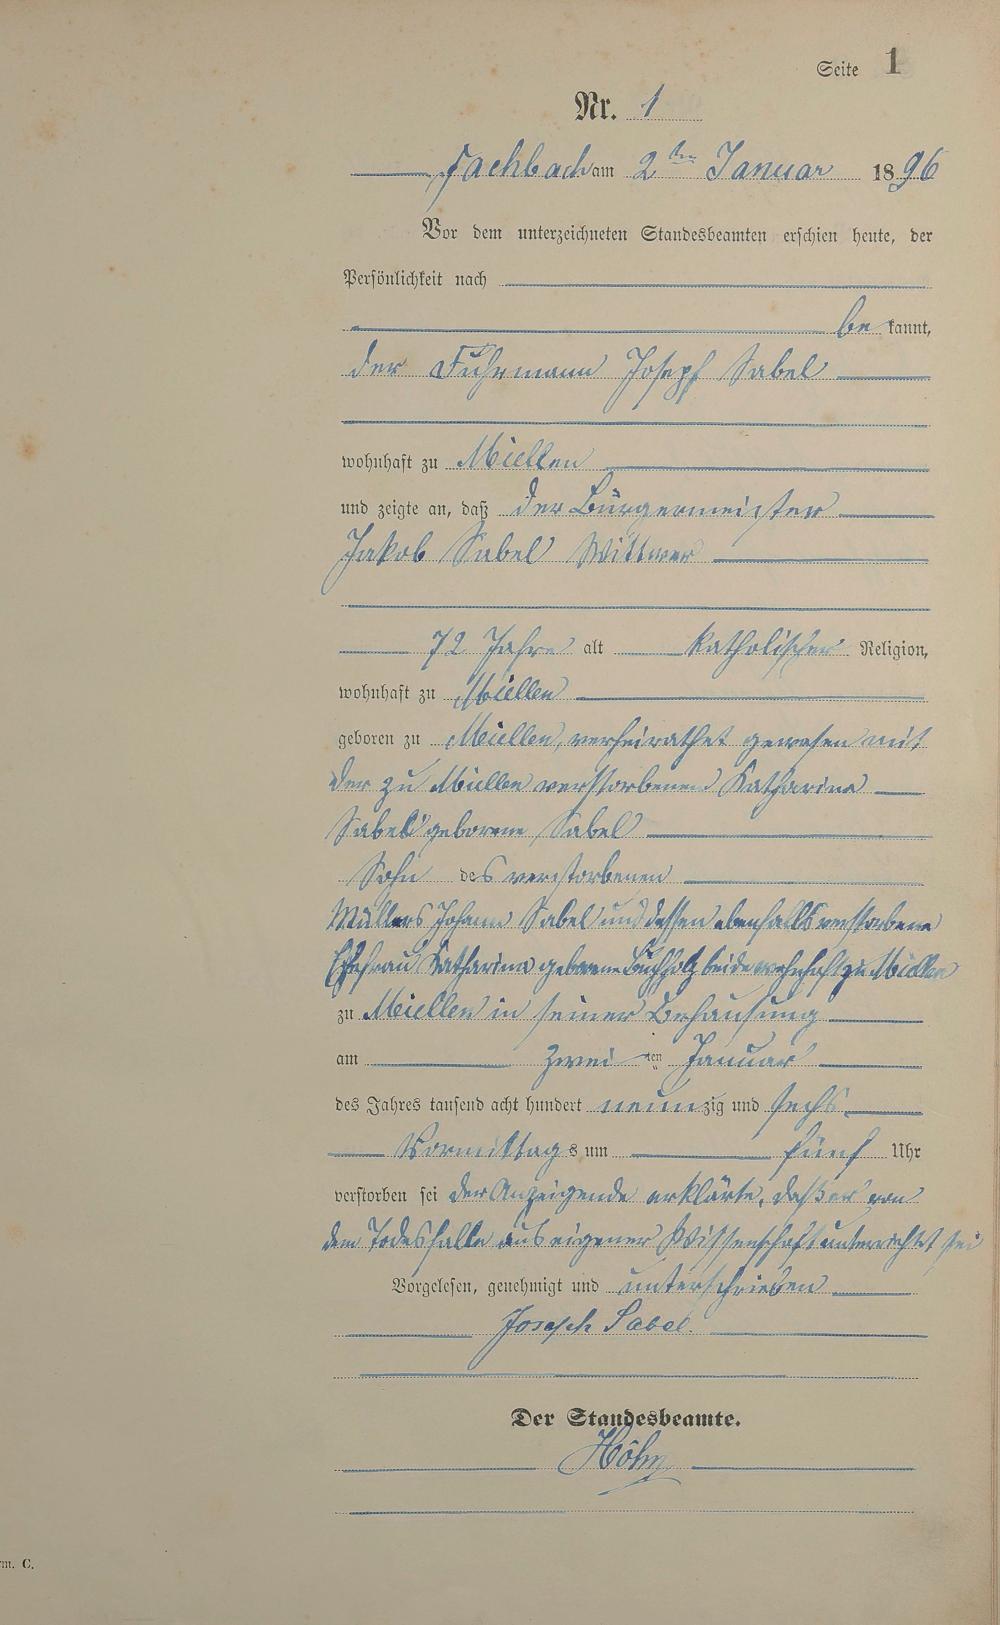 Seite 1
Nr. 1
Fachbach am 2ten Januar 1896
Vor dem unterzeichneten Standesbeamten erschien heute, der
Persönlichkeit nach
be kannt,
der Fuhrmann Joseph Sabel
wohnhaft zu Miellen
und zeigte an, daß der Bürgermeister
Jakob Sabel Wittwer
72 Jahre alt katholischer Religion,
wohnhaft zu Miellen
geboren zu Miellen, verheirathet gewesen mit
der zu Miellen verstorbenen Katharina
Sabel geborene Sabel
Sohn des verstorbenen
Müllers Johann Sabel und dessen ebenfalls verstorbene
Ehefrau Katharina geborene Buchholz beide wohnhaft zu Miellen
zu Miellen in seiner Behausung
am zwei ten Januar
des Jahres tausend acht hundert neunzig und sechs
Vormittags um fünf Uhr
verstorben sei der Anzeigende erklärte, daß er von
dem Todesfalle aus eigener Wissenschaft unterrichtet sei
Vorgelesen, genehmigt und unterschrieben
Joseph Sabel.
Der Standesbeamte.
Höhn
rm. C.